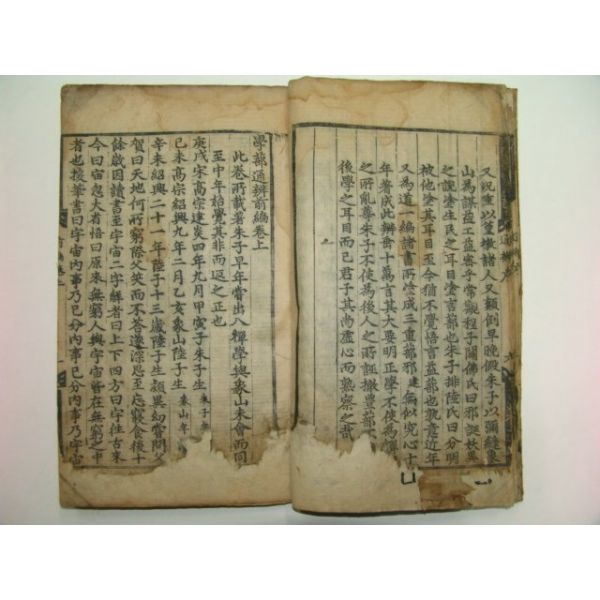 又況重以篁墩諸人又顛倒早晩假朱子以彌縫象
山爲謀益工益密乎常觀程子闢佛氏曰邪誕妖異
之說塗生民之耳目塗言蔀也朱子排陸氏曰分明
被他塗其耳目至今猶不覺悟言益蔀也孰意近年
又爲道一編諸書所塗成三重蔀邪建爲此究心十
年著成此辨垂十萬言其大要明正學不使爲禪
之所亂尊朱子不使爲後人之所誣撤豊蔀
後學之耳目而已君子其尚虛心而熟察之哉
學蔀通辨前編卷上
此卷所載著朱子早年嘗出入禪學與象山未會而同
至中年始覺其非而返之正也
庚戌宋高宗建炎四年九月甲寅子朱子生
己未高宗紹興九年二月乙亥象山陸子生
朱子
象山年
辛未紹興二十一年陸子十三歲陸子生穎異幼嘗問父
賀曰天地何所窮際父笑而不答遂深思至忘寢食後十
餘歲因讀書至宇宙二字解者曰上下四方曰宇往古來
今曰宙忽大省悟曰原來無窮人與宇宙皆在無窮之中
者也援筆書曰宇宙內事乃己分內事己分內事乃宇宙